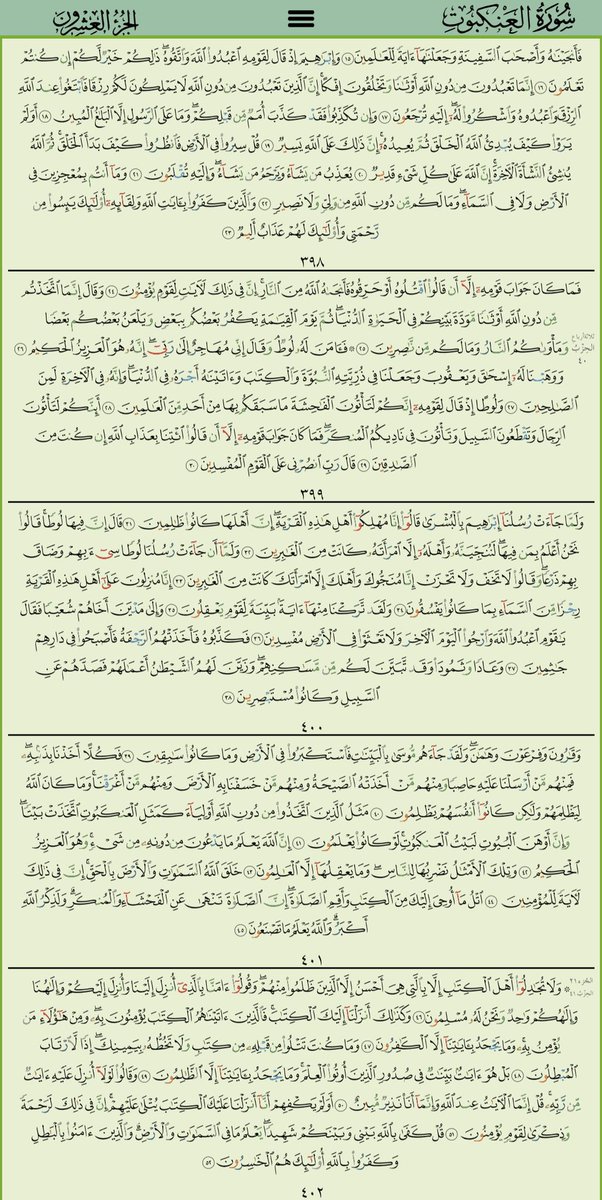 سُورَةُ العَنكَبُوتِ
الجُزءُ العِشرُونَ
فَأَنجَيْنَٰهُ وَأَصْحَٰبَ ٱلسَّفِينَةِ وَجَعَلْنَٰهَآ ءَايَةً لِّلْعَٰلَمِينَ ١٥ وَإِبْرَٰهِيمَ إِذْ قَالَ لِقَوْمِهِ ٱعْبُدُوا۟ ٱللَّهَ وَٱتَّقُوهُ ۖ ذَٰلِكُمْ خَيْرٌ لَّكُمْ إِن كُنتُمْ
تَعْلَمُونَ ١٦ إِنَّمَا تَعْبُدُونَ مِن دُونِ ٱللَّهِ أَوْثَٰنًا وَتَخْلُقُونَ إِفْكًا ۚ إِنَّ ٱلَّذِينَ تَعْبُدُونَ مِن دُونِ ٱللَّهِ لَا يَمْلِكُونَ لَكُمْ رِزْقًا فَٱبْتَغُوا۟ عِندَ ٱللَّهِ
ٱلرِّزْقَ وَٱعْبُدُوهُ وَٱشْكُرُوا۟ لَهُۥٓ ۖ إِلَيْهِ تُرْجَعُونَ ١٧ وَإِن تُكَذِّبُوا۟ فَقَدْ كَذَّبَ أُمَمٌ مِّن قَبْلِكُمْ ۖ وَمَا عَلَى ٱلرَّسُولِ إِلَّا ٱلْبَلَٰغُ ٱلْمُبِينُ ١٨ أَوَلَمْ
يَرَوْا۟ كَيْفَ يُبْدِئُ ٱللَّهُ ٱلْخَلْقَ ثُمَّ يُعِيدُهُۥٓ ۚ إِنَّ ذَٰلِكَ عَلَى ٱللَّهِ يَسِيرٌ ١٩ قُلْ سِيرُوا۟ فِى ٱلْأَرْضِ فَٱنظُرُوا۟ كَيْفَ بَدَأَ ٱلْخَلْقَ ۚ ثُمَّ ٱللَّهُ
يُنشِئُ ٱلنَّشْأَةَ ٱلْءَاخِرَةَ ۚ إِنَّ ٱللَّهَ عَلَىٰ كُلِّ شَىْءٍ قَدِيرٌ ٢٠ يُعَذِّبُ مَن يَشَآءُ وَيَرْحَمُ مَن يَشَآءُ ۖ وَإِلَيْهِ تُقْلَبُونَ ٢١ وَمَآ أَنتُم بِمُعْجِزِينَ فِى
ٱلْأَرْضِ وَلَا فِى ٱلسَّمَآءِ ۖ وَمَا لَكُم مِّن دُونِ ٱللَّهِ مِن وَلِىٍّ وَلَا نَصِيرٍ ٢٢ وَٱلَّذِينَ كَفَرُوا۟ بِـَٔايَٰتِ ٱللَّهِ وَلِقَآئِهِۦٓ أُو۟لَٰٓئِكَ يَئِسُوا۟ مِن
رَّحْمَتِى وَأُو۟لَٰٓئِكَ لَهُمْ عَذَابٌ أَلِيمٌ ٢٣
٣٩٨
فَمَا كَانَ جَوَابَ قَوْمِهِۦٓ إِلَّآ أَن قَالُوا۟ ٱقْتُلُوهُ أَوْ حَرِّقُوهُ فَأَنجَىٰهُ ٱللَّهُ مِنَ ٱلنَّارِ ۚ إِنَّ فِى ذَٰلِكَ لَءَايَٰتٍ لِّقَوْمٍ يُؤْمِنُونَ ٢٤ وَقَالَ إِنَّمَا ٱتَّخَذْتُم
مِّن دُونِ ٱللَّهِ أَوْثَٰنًا مَّوَدَّةَ بَيْنِكُمْ فِى ٱلْحَيَوٰةِ ٱلدُّنْيَا ۖ ثُمَّ يَوْمَ ٱلْقِيَٰمَةِ يَكْفُرُ بَعْضُكُم بِبَعْضٍ وَيَلْعَنُ بَعْضُكُم بَعْضًا
ثلاثة أرباع الحزب ٤٠
وَمَأْوَىٰكُمُ ٱلنَّارُ وَمَا لَكُم مِّن نَّٰصِرِينَ ٢٥ ۞ فَـَٔامَنَ لَهُۥ لُوطٌ ۘ وَقَالَ إِنِّى مُهَاجِرٌ إِلَىٰ رَبِّىٓ ۖ إِنَّهُۥ هُوَ ٱلْعَزِيزُ ٱلْحَكِيمُ ٢٦
وَوَهَبْنَا لَهُۥٓ إِسْحَٰقَ وَيَعْقُوبَ وَجَعَلْنَا فِى ذُرِّيَّتِهِ ٱلنُّبُوَّةَ وَٱلْكِتَٰبَ وَءَاتَيْنَٰهُ أَجْرَهُۥ فِى ٱلدُّنْيَا ۖ وَإِنَّهُۥ فِى ٱلْءَاخِرَةِ لَمِنَ
ٱلصَّٰلِحِينَ ٢٧ وَلُوطًا إِذْ قَالَ لِقَوْمِهِۦٓ إِنَّكُمْ لَتَأْتُونَ ٱلْفَٰحِشَةَ مَا سَبَقَكُم بِهَا مِنْ أَحَدٍ مِّنَ ٱلْعَٰلَمِينَ ٢٨ أَئِنَّكُمْ لَتَأْتُونَ
ٱلرِّجَالَ وَتَقْطَعُونَ ٱلسَّبِيلَ وَتَأْتُونَ فِى نَادِيكُمُ ٱلْمُنكَرَ ۖ فَمَا كَانَ جَوَابَ قَوْمِهِۦٓ إِلَّآ أَن قَالُوا۟ ٱئْتِنَا بِعَذَابِ ٱللَّهِ إِن كُنتَ مِنَ
ٱلصَّٰدِقِينَ ٢٩ قَالَ رَبِّ ٱنصُرْنِى عَلَى ٱلْقَوْمِ ٱلْمُفْسِدِينَ ٣٠
٣٩٩
وَلَمَّا جَآءَتْ رُسُلُنَآ إِبْرَٰهِيمَ بِٱلْبُشْرَىٰ قَالُوٓا۟ إِنَّا مُهْلِكُوٓا۟ أَهْلِ هَٰذِهِ ٱلْقَرْيَةِ ۖ إِنَّ أَهْلَهَا كَانُوا۟ ظَٰلِمِينَ ٣١ قَالَ إِنَّ فِيهَا لُوطًا ۚ قَالُوا۟
نَحْنُ أَعْلَمُ بِمَن فِيهَا ۖ لَنُنَجِّيَنَّهُۥ وَأَهْلَهُۥٓ إِلَّا ٱمْرَأَتَهُۥ كَانَتْ مِنَ ٱلْغَٰبِرِينَ ٣٢ وَلَمَّآ أَن جَآءَتْ رُسُلُنَا لُوطًا سِىٓءَ بِهِمْ وَضَاقَ
بِهِمْ ذَرْعًا وَقَالُوا۟ لَا تَخَفْ وَلَا تَحْزَنْ ۖ إِنَّا مُنَجُّوكَ وَأَهْلَكَ إِلَّا ٱمْرَأَتَكَ كَانَتْ مِنَ ٱلْغَٰبِرِينَ ٣٣ إِنَّا مُنزِلُونَ عَلَىٰٓ أَهْلِ هَٰذِهِ ٱلْقَرْيَةِ
رِجْزًا مِّنَ ٱلسَّمَآءِ بِمَا كَانُوا۟ يَفْسُقُونَ ٣٤ وَلَقَد تَّرَكْنَا مِنْهَآ ءَايَةًۢ بَيِّنَةً لِّقَوْمٍ يَعْقِلُونَ ٣٥ وَإِلَىٰ مَدْيَنَ أَخَاهُمْ شُعَيْبًا فَقَالَ
يَٰقَوْمِ ٱعْبُدُوا۟ ٱللَّهَ وَٱرْجُوا۟ ٱلْيَوْمَ ٱلْءَاخِرَ وَلَا تَعْثَوْا۟ فِى ٱلْأَرْضِ مُفْسِدِينَ ٣٦ فَكَذَّبُوهُ فَأَخَذَتْهُمُ ٱلرَّجْفَةُ فَأَصْبَحُوا۟ فِى دَارِهِمْ
جَٰثِمِينَ ٣٧ وَعَادًا وَثَمُودَا۟ وَقَد تَّبَيَّنَ لَكُم مِّن مَّسَٰكِنِهِمْ ۖ وَزَيَّنَ لَهُمُ ٱلشَّيْطَٰنُ أَعْمَٰلَهُمْ فَصَدَّهُمْ عَنِ
ٱلسَّبِيلِ وَكَانُوا۟ مُسْتَبْصِرِينَ ٣٨
٤٠٠
وَقَٰرُونَ وَفِرْعَوْنَ وَهَٰمَٰنَ ۖ وَلَقَدْ جَآءَهُم مُّوسَىٰ بِٱلْبَيِّنَٰتِ فَٱسْتَكْبَرُوا۟ فِى ٱلْأَرْضِ وَمَا كَانُوا۟ سَٰبِقِينَ ٣٩ فَكُلًّا أَخَذْنَا بِذَنۢبِهِۦ ۖ
فَمِنْهُم مَّنْ أَرْسَلْنَا عَلَيْهِ حَاصِبًا وَمِنْهُم مَّنْ أَخَذَتْهُ ٱلصَّيْحَةُ وَمِنْهُم مَّنْ خَسَفْنَا بِهِ ٱلْأَرْضَ وَمِنْهُم مَّنْ أَغْرَقْنَا ۚ وَمَا كَانَ ٱللَّهُ
لِيَظْلِمَهُمْ وَلَٰكِن كَانُوٓا۟ أَنفُسَهُمْ يَظْلِمُونَ ٤٠ مَثَلُ ٱلَّذِينَ ٱتَّخَذُوا۟ مِن دُونِ ٱللَّهِ أَوْلِيَآءَ كَمَثَلِ ٱلْعَنكَبُوتِ ٱتَّخَذَتْ بَيْتًا ۖ
وَإِنَّ أَوْهَنَ ٱلْبُيُوتِ لَبَيْتُ ٱلْعَنكَبُوتِ ۖ لَوْ كَانُوا۟ يَعْلَمُونَ ٤١ إِنَّ ٱللَّهَ يَعْلَمُ مَا يَدْعُونَ مِن دُونِهِۦ مِن شَىْءٍ ۚ وَهُوَ ٱلْعَزِيزُ
ٱلْحَكِيمُ ٤٢ وَتِلْكَ ٱلْأَمْثَٰلُ نَضْرِبُهَا لِلنَّاسِ ۖ وَمَا يَعْقِلُهَآ إِلَّا ٱلْعَٰلِمُونَ ٤٣ خَلَقَ ٱللَّهُ ٱلسَّمَٰوَٰتِ وَٱلْأَرْضَ بِٱلْحَقِّ ۚ إِنَّ فِى ذَٰلِكَ
لَءَايَةً لِّلْمُؤْمِنِينَ ٤٤ ٱتْلُ مَآ أُوحِىَ إِلَيْكَ مِنَ ٱلْكِتَٰبِ وَأَقِمِ ٱلصَّلَوٰةَ ۖ إِنَّ ٱلصَّلَوٰةَ تَنْهَىٰ عَنِ ٱلْفَحْشَآءِ وَٱلْمُنكَرِ ۗ وَلَذِكْرُ ٱللَّهِ
أَكْبَرُ ۗ وَٱللَّهُ يَعْلَمُ مَا تَصْنَعُونَ ٤٥
٤٠١
الجزء ٢١ الحزب ٤١
۞ وَلَا تُجَٰدِلُوٓا۟ أَهْلَ ٱلْكِتَٰبِ إِلَّا بِٱلَّتِى هِىَ أَحْسَنُ إِلَّا ٱلَّذِينَ ظَلَمُوا۟ مِنْهُمْ ۖ وَقُولُوٓا۟ ءَامَنَّا بِٱلَّذِىٓ أُنزِلَ إِلَيْنَا وَأُنزِلَ إِلَيْكُمْ وَإِلَٰهُنَا
وَإِلَٰهُكُمْ وَٰحِدٌ وَنَحْنُ لَهُۥ مُسْلِمُونَ ٤٦ وَكَذَٰلِكَ أَنزَلْنَآ إِلَيْكَ ٱلْكِتَٰبَ ۚ فَٱلَّذِينَ ءَاتَيْنَٰهُمُ ٱلْكِتَٰبَ يُؤْمِنُونَ بِهِۦ ۖ وَمِنْ هَٰٓؤُلَآءِ مَن
يُؤْمِنُ بِهِۦ ۚ وَمَا يَجْحَدُ بِـَٔايَٰتِنَآ إِلَّا ٱلْكَٰفِرُونَ ٤٧ وَمَا كُنتَ تَتْلُوا۟ مِن قَبْلِهِۦ مِن كِتَٰبٍ وَلَا تَخُطُّهُۥ بِيَمِينِكَ ۖ إِذًا لَّٱرْتَابَ
ٱلْمُبْطِلُونَ ٤٨ بَلْ هُوَ ءَايَٰتٌۢ بَيِّنَٰتٌ فِى صُدُورِ ٱلَّذِينَ أُوتُوا۟ ٱلْعِلْمَ ۚ وَمَا يَجْحَدُ بِـَٔايَٰتِنَآ إِلَّا ٱلظَّٰلِمُونَ ٤٩ وَقَالُوا۟ لَوْلَآ أُنزِلَ عَلَيْهِ ءَايَٰتٌ
مِّن رَّبِّهِۦ ۖ قُلْ إِنَّمَا ٱلْءَايَٰتُ عِندَ ٱللَّهِ وَإِنَّمَآ أَنَا۠ نَذِيرٌ مُّبِينٌ ٥٠ أَوَلَمْ يَكْفِهِمْ أَنَّآ أَنزَلْنَا عَلَيْكَ ٱلْكِتَٰبَ يُتْلَىٰ عَلَيْهِمْ ۚ إِنَّ فِى ذَٰلِكَ لَرَحْمَةً
وَذِكْرَىٰ لِقَوْمٍ يُؤْمِنُونَ ٥١ قُلْ كَفَىٰ بِٱللَّهِ بَيْنِى وَبَيْنَكُمْ شَهِيدًا ۖ يَعْلَمُ مَا فِى ٱلسَّمَٰوَٰتِ وَٱلْأَرْضِ ۗ وَٱلَّذِينَ ءَامَنُوا۟ بِٱلْبَٰطِلِ
وَكَفَرُوا۟ بِٱللَّهِ أُو۟لَٰٓئِكَ هُمُ ٱلْخَٰسِرُونَ ٥٢
٤٠٢